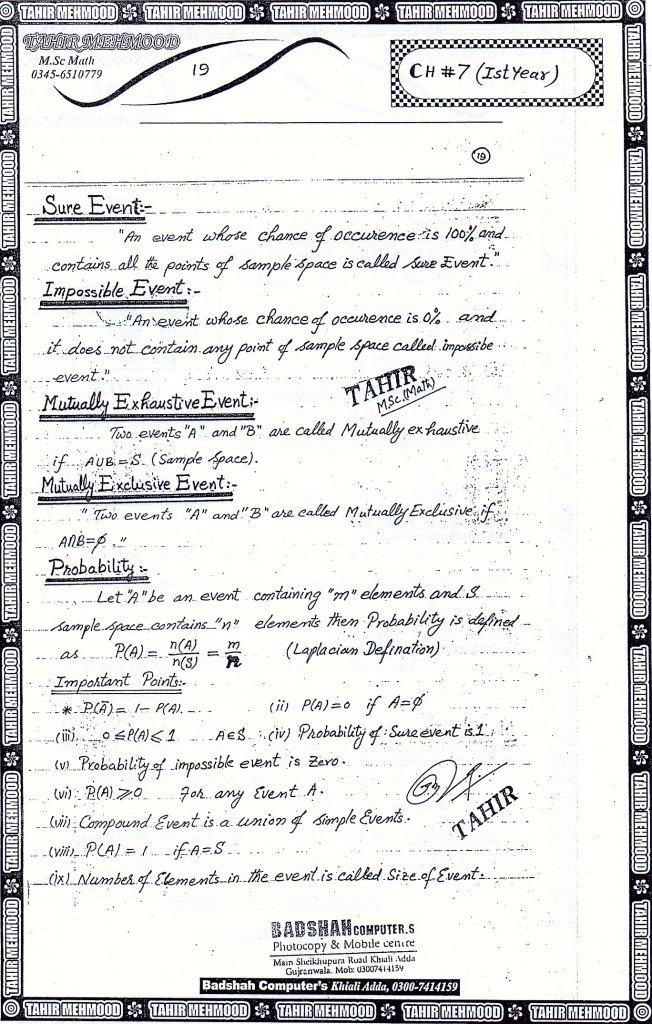 TAHIR MEHMOOD TAHIR MEHMOOD TAHIR MEHMOOD TAHIR MEHMOOD TAHIR MEHMOOD
TAHIR MEHMOOD
M.Sc Math
0345-6510779
19
CH #7 (Ist Year)
19
Sure Event:-
"An event whose chance of occurence is 100% and
contains all the points of sample space is called sure Event."
Impossible Event:-
"An event whose chance of occurence is 0% and
it does not contain any point of sample space called impossibe
event."
TAHIR
M.Sc.(Math)
Mutually Exhaustive Event:-
Two events "A" and "B" are called Mutually exhaustive
if A∪B=S (Sample Space).
Mutually Exclusive Event:-
"Two events "A" and "B" are called Mutually Exclusive if
A∩B=φ."
Probability:-
Let "A" be an event containing "m" elements and S
sample space contains "n" elements then Probability is defined
as P(A) = n(A)/n(S) = m/n (Laplacian Defination)
Important Points:-
* P(Ā) = 1 - P(A). (ii) P(A)=0 if A=φ
(iii) 0≤P(A)≤1 A∈S (iv) Probability of Sure event is 1
(v) Probability of impossible event is Zero.
(vi) P(A) ≥0 For any Event A.
(vii) Compound Event is a union of simple Events.
TAHIR
(viii) P(A) = 1 if A=S
(ix) Number of Elements in the event is called Size of Event.
BADSHAH COMPUTER.S
Photocopy & Mobile centre
Main Sheikhupura Road Khiali Adda
Gujranwala. Mob: 03007414159
Badshah Computer's Khiali Adda, 0300-7414159
TAHIR MEHMOOD TAHIR MEHMOOD TAHIR MEHMOOD TAHIR MEHMOOD TAHIR MEHMOOD